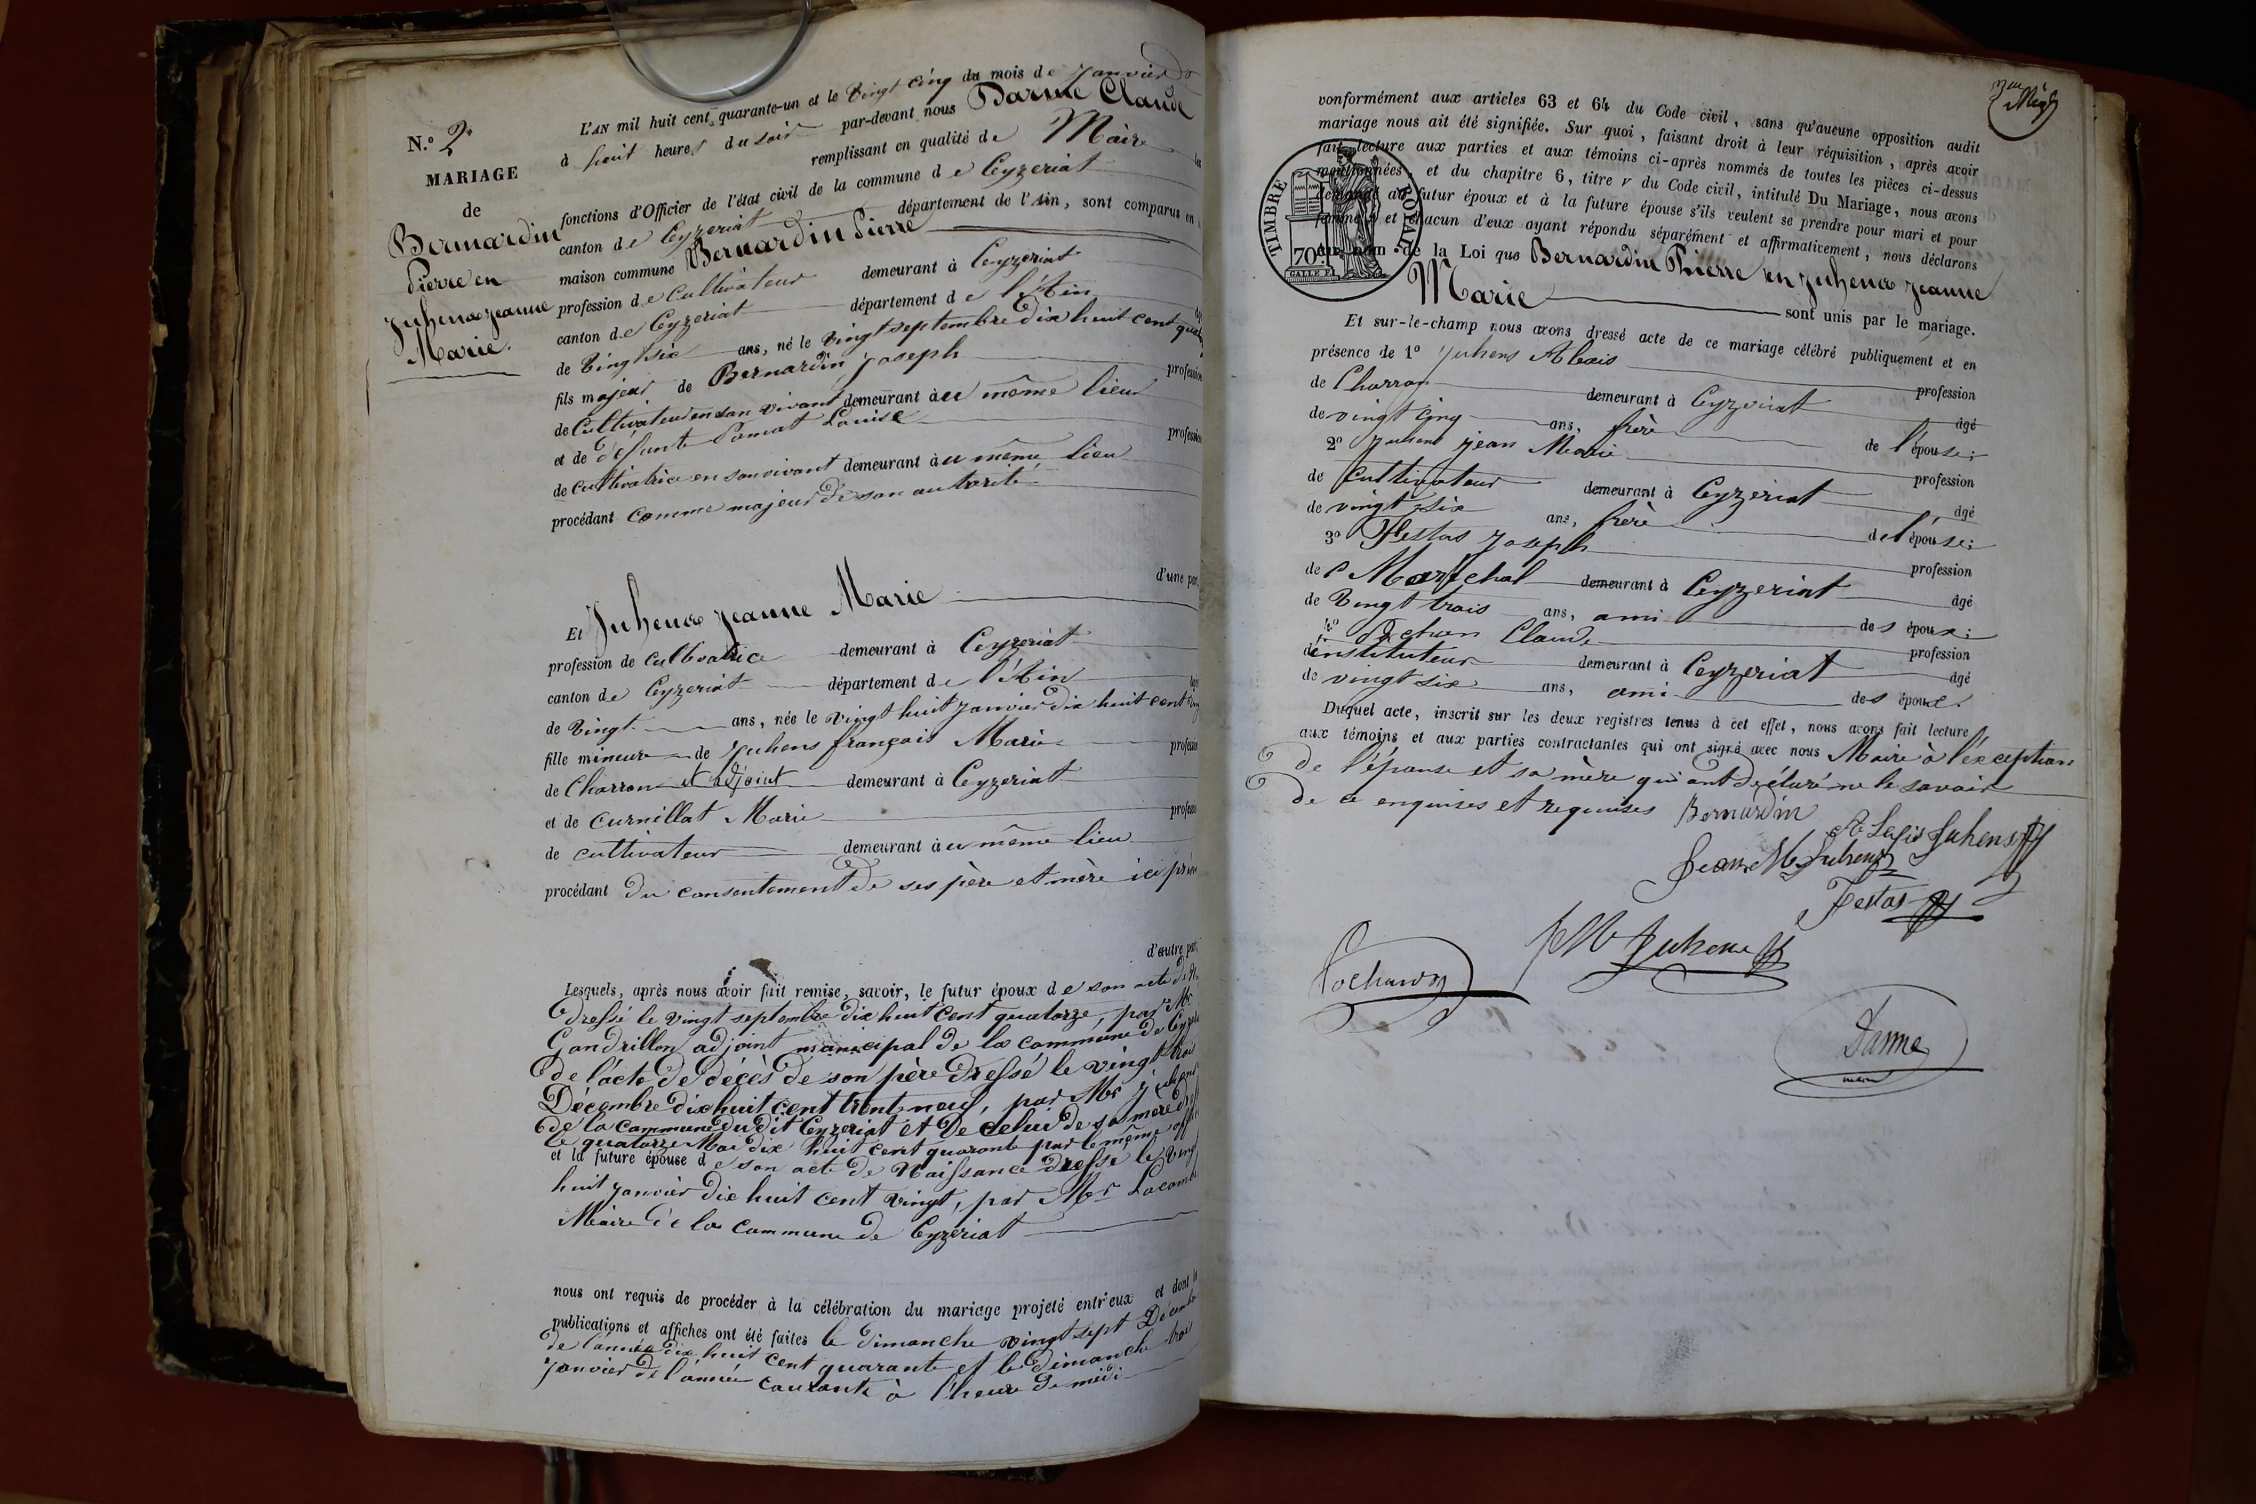 N.º 2
MARIAGE
de
Bernardin
Pierre en
Juhens Jeanne
Marie.
L'AN mil huit cent quarante-un et le vingt cinq du mois de Janvier
à huit heures du soir par-devant nous Darme Claude
remplissant en qualité de Maire les
fonctions d'Officier de l'état civil de la commune de Ceyzeriat
canton de Ceyzeriat département de l'Ain, sont comparus en
maison commune Bernardin Pierre
profession de Cultivateur demeurant à Ceyzeriat
canton de Ceyzeriat département de l'Ain
de vingt six ans, né le vingt septembre dix huit cent
fils majeur de Bernardin Joseph profession
de Cultivateur en son vivant demeurant à au même lieu
et de défunte Pomat Louise profession
de cultivatrice en son vivant demeurant à au même lieu
procédant comme majeur de son autorité
d'une par
Et Juhens Jeanne Marie
profession de cultivatrice demeurant à Ceyzeriat
canton de Ceyzeriat département de l'Ain
de vingt ans, née le vingt huit Janvier dix huit cent
fille mineure de Juhens françois Marie profession
de Charron et adjoint demeurant à Ceyzeriat
et de Curnillat Marie profession
de cultivateur demeurant à au même lieu
procédant du consentement de ses père et mère ici
d'autre par
Lesquels, après nous avoir fait remise, savoir, le futur époux de son acte de
dressé le vingt septembre dix huit cent quatorze, par Mr
Gandrillon adjoint municipal de la commune de
de l'acte de décès de son père dressé le vingt trois
Décembre dix huit cent trente neuf, par Mr Juhens
de la commune du dit Ceyzeriat et De celui de sa mère
le quatorze Mai dix huit cent quarante par le même
et la future épouse de son acte de Naissance dressé le vingt
huit Janvier dix huit cent vingt, par Mr Lacombe
Maire de la commune de Ceyzeriat
nous ont requis de procéder à la célébration du mariage projeté entr'eux et dont
publications et affiches ont été faites le dimanche vingt sept Décembre
de l'année dix huit cent quarante et le dimanche trois
Janvier de l'année courante à l'heure de midi
conformément aux articles 63 et 64 du Code civil, sans qu'aucune opposition audit
mariage nous ait été signifiée. Sur quoi, faisant droit à leur réquisition, après avoir
fait lecture aux parties et aux témoins ci-après nommés de toutes les pièces ci-dessus
mentionnées, et du chapitre 6, titre v du Code civil, intitulé Du Mariage, nous avons
demandé au futur époux et à la future épouse s'ils veulent se prendre pour mari et pour
femme, et chacun d'eux ayant répondu séparément et affirmativement, nous déclarons
au nom de la Loi que Bernardin Pierre en Juhens Jeanne
Marie sont unis par le mariage.
TIMBRE ROYAL
70
Et sur-le-champ nous avons dressé acte de ce mariage célébré publiquement et en
présence de 1º Juhens Alexis profession
de Charron demeurant à Ceyzeriat âgé
de vingt cinq ans, frère de l'épouse;
2º Juhens Jean Marie profession
de cultivateur demeurant à Ceyzeriat âgé
de vingt six ans, frère de l'épouse;
3º Festas Joseph profession
de Maréchal demeurant à Ceyzeriat âgé
de vingt trois ans, ami des époux;
4º Pochan Claude profession
d'instituteur demeurant à Ceyzeriat âgé
de vingt six ans, ami des époux.
Duquel acte, inscrit sur les deux registres tenus à cet effet, nous avons fait lecture
aux témoins et aux parties contractantes qui ont signé avec nous Maire à l'exception
de l'épouse et sa mère qui ont déclaré ne le savoir
de ce enquises et requises Bernardin
Alexis Juhens
Jean M Juhens
Festas
f M Juhens
Darme
maire